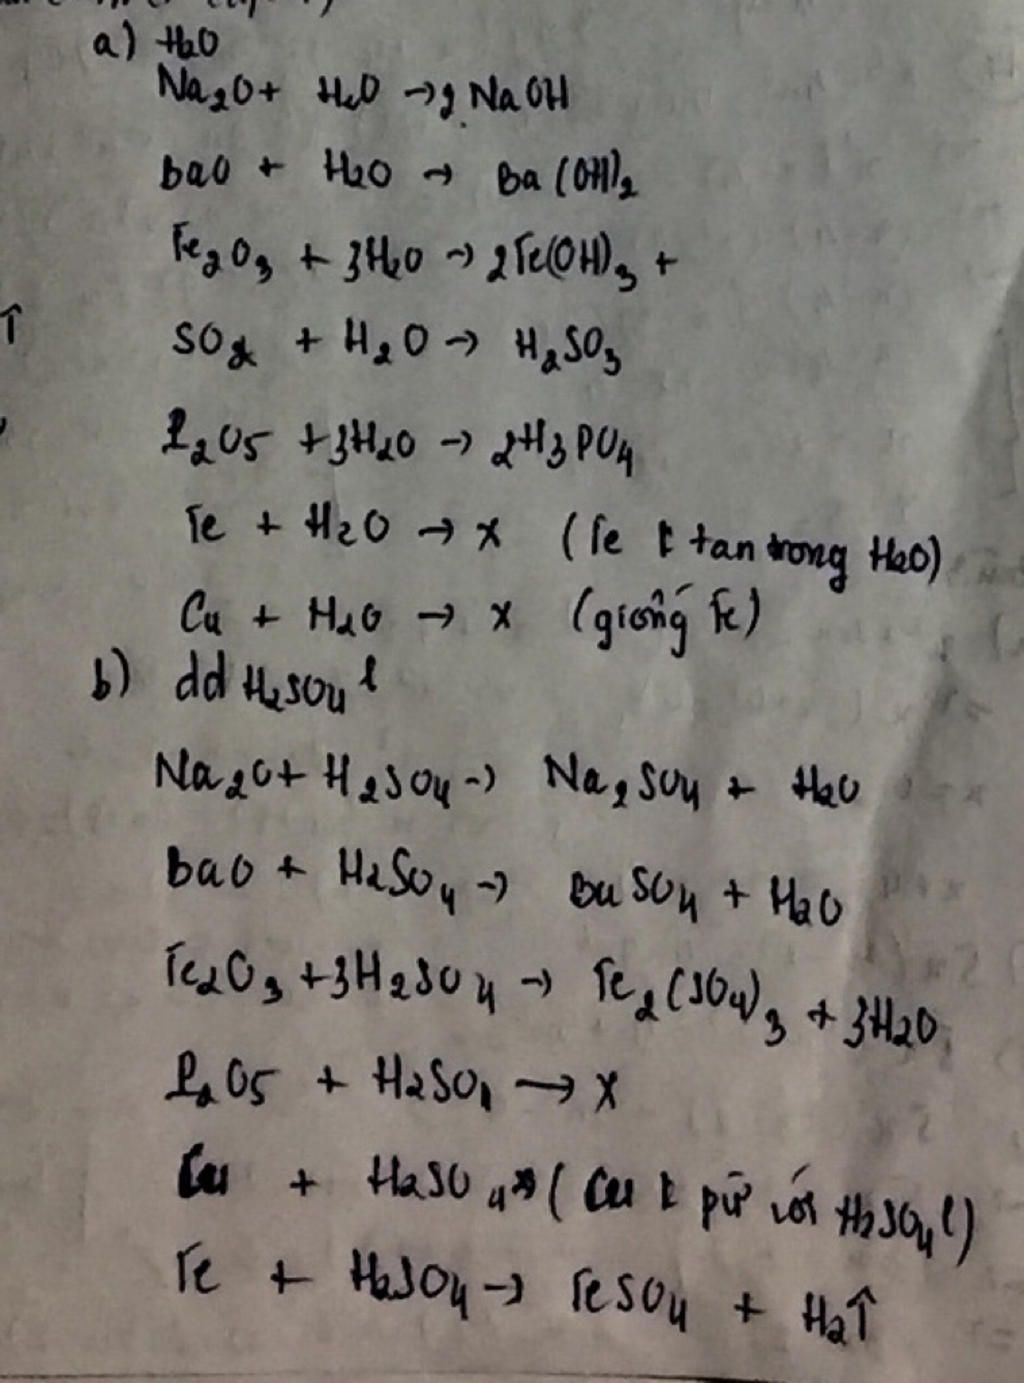 a) H₂O
Na₂O + H₂O → 2 NaOH
BaO + H₂O → Ba(OH)₂
Fe₂O₃ + 3H₂O → 2Fe(OH)₃ +
SO₂ + H₂O → H₂SO₃
P₂O₅ + 3H₂O → 2H₃PO₄
Fe + H₂O → x (Fe k tan trong H₂O)
Cu + H₂O → x (giống Fe)
b) dd H₂SO₄ l
Na₂O + H₂SO₄ → Na₂SO₄ + H₂O
BaO + H₂SO₄ → BaSO₄ + H₂O
Fe₂O₃ + 3H₂SO₄ → Fe₂(SO₄)₃ + 3H₂O
P₂O₅ + H₂SO₄ → x
Cu + H₂SO₄ (Cu k pư với H₂SO₄ l)
Fe + H₂SO₄ → FeSO₄ + H₂↑